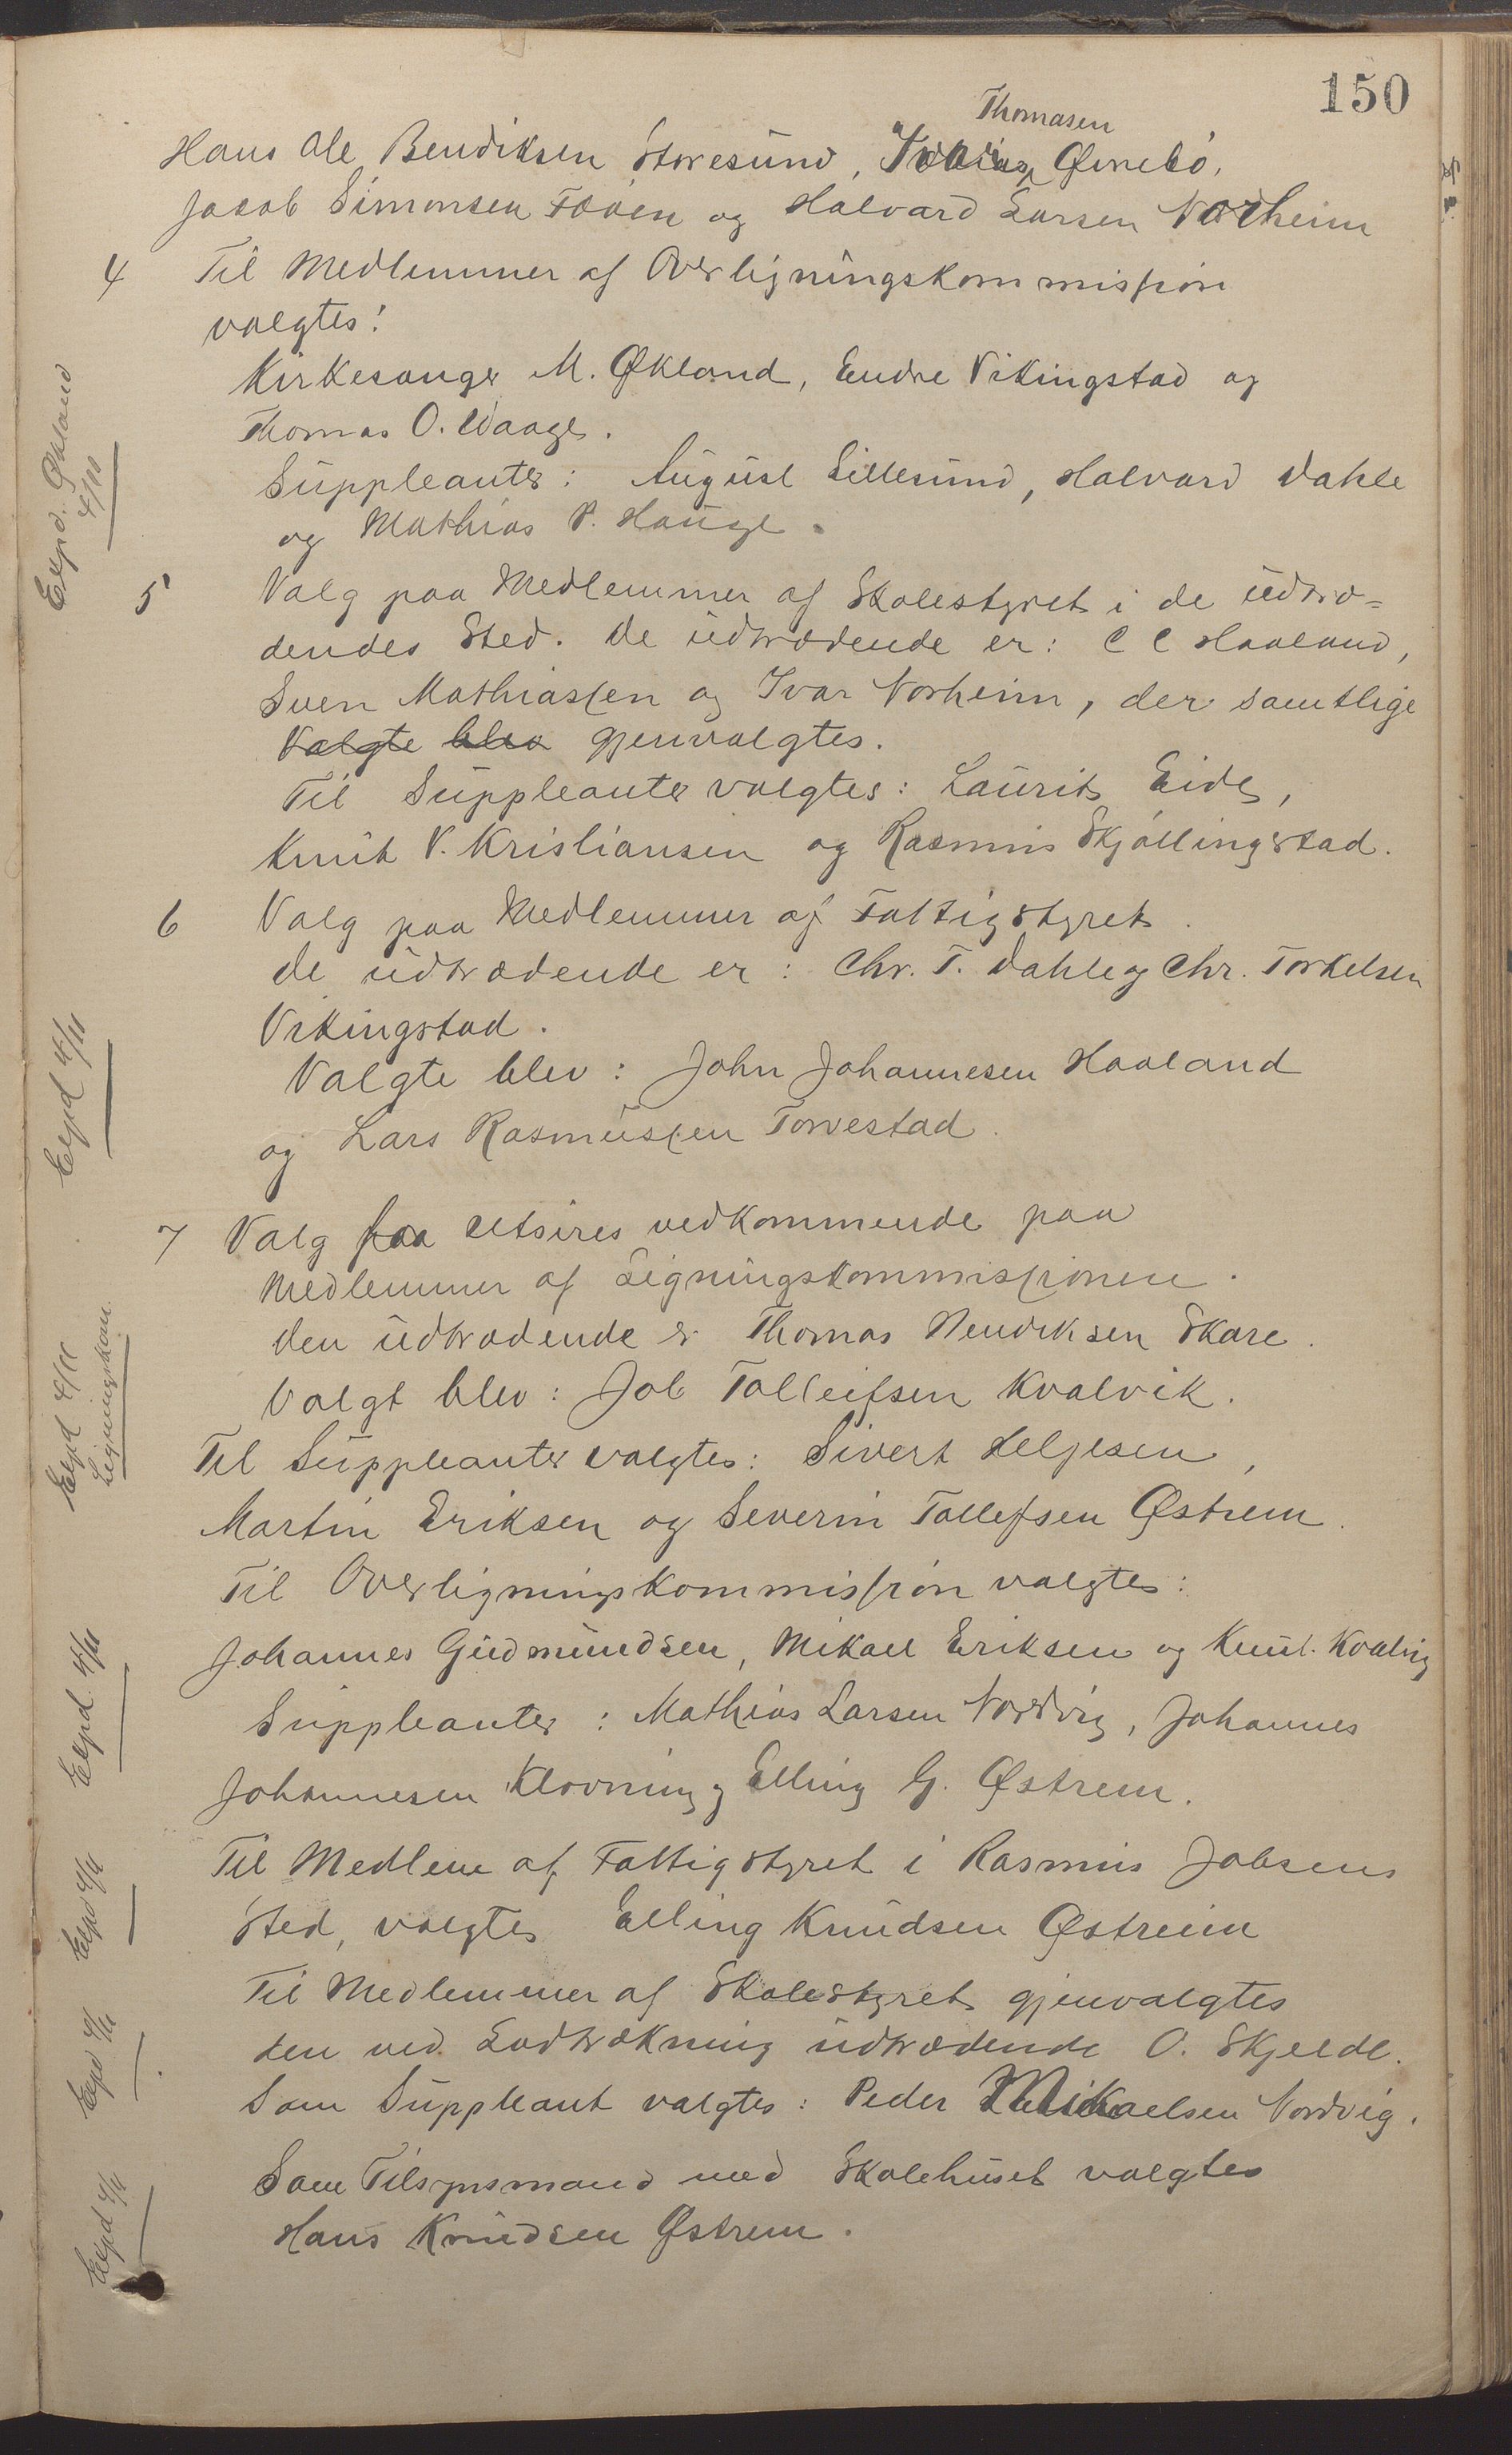 150
Thomasen
Hans Ole Bendiksen Storesund, Tobias Øvrebö,
Jacob Simonsen Fööen og Halvard Larsen Norheim
4 Til Medlemmer af Overligningskommission
valgtes:
Kirkesanger M. Økland, Endre Vikingstad og
Thomas O. Waage.
Suppleanter: August Lillesund, Halvard Dahle
og Mathias P. Hauge.
Expd. Økland 4/11
5 Valg paa Medlemmer af Skolestyret i de udtræ=
dendes Sted. De udtrædende er: C C Haaland,
Sven Mathiassen og Ivar Norheim, der samtlige
Valgte blev gjenvalgtes.
Til Suppleanter valgtes: Laurits Eide,
Knut V. Kristiansen og Rasmus Skjöllingstad.
6 Valg paa Medlemmer af Fattigstyret.
De udtrædende er: Chr. T. Dahle og Chr. Torkelsen
Vikingstad.
Valgte blev: John Johannesen Haaland
og Lars Rasmussen Torvestad.
Expd 4/11
7 Valg for Utsires vedkommende paa
Medlemmer af Ligningskommissionen.
Den udtrædende er Thomas Hendiksen Skare.
Valgt blev: Job Tolleifsen Kvalvik.
Expd 4/11
Ligningskom.
Til Suppleanter valgtes: Sivert Helgesen,
Martin Eriksen og Severin Tollefsen Østrem.
Til Overligningskommission valgtes:
Johannes Gudmundsen, Mikael Eriksen og Knut Kvalvig
Expd. 4/11
Suppleanter: Mathias Larsen Nordvig, Johannes
Johannesen Klovning og Elling G. Østrem.
Til Medlem af Fattigstyret i Rasmus Jobsens
Sted, valgtes Elling Knudsen Østreim
Expd 4/11
Til Medlemmer af Skolestyret gjenvalgtes
den ved Lodtrækning udtrædende O. Skjelde.
Som Suppleant valgtes: Peder Mikaelsen Nordvig.
Expd 4/11
Som Tilsynsmand med Skolehuset valgtes
Hans Knudsen Østrem.
Expd 4/11